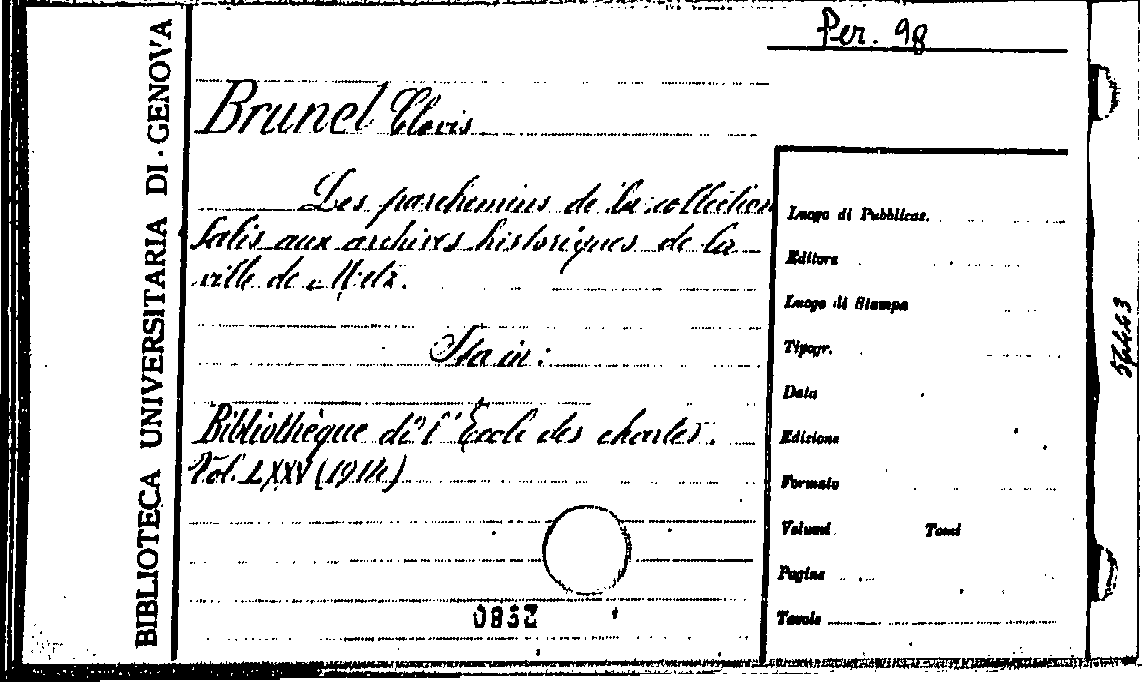 Per. 98
BIBLIOTECA UNIVERSITARIA DI · GENOVA
Brunel Clovis
Les parchemins de la collection
Salis aux archives historiques de la
ville de Metz.
Sta in:
Bibliothèque de l'École des chartes.
Vol. LXXV (1914)
0832
Luogo di Pubblicaz.
Editore
Luogo di Stampa
Tipogr.
Data
Edizione
Formato
Volumi Tomi
Pagine
Tavole